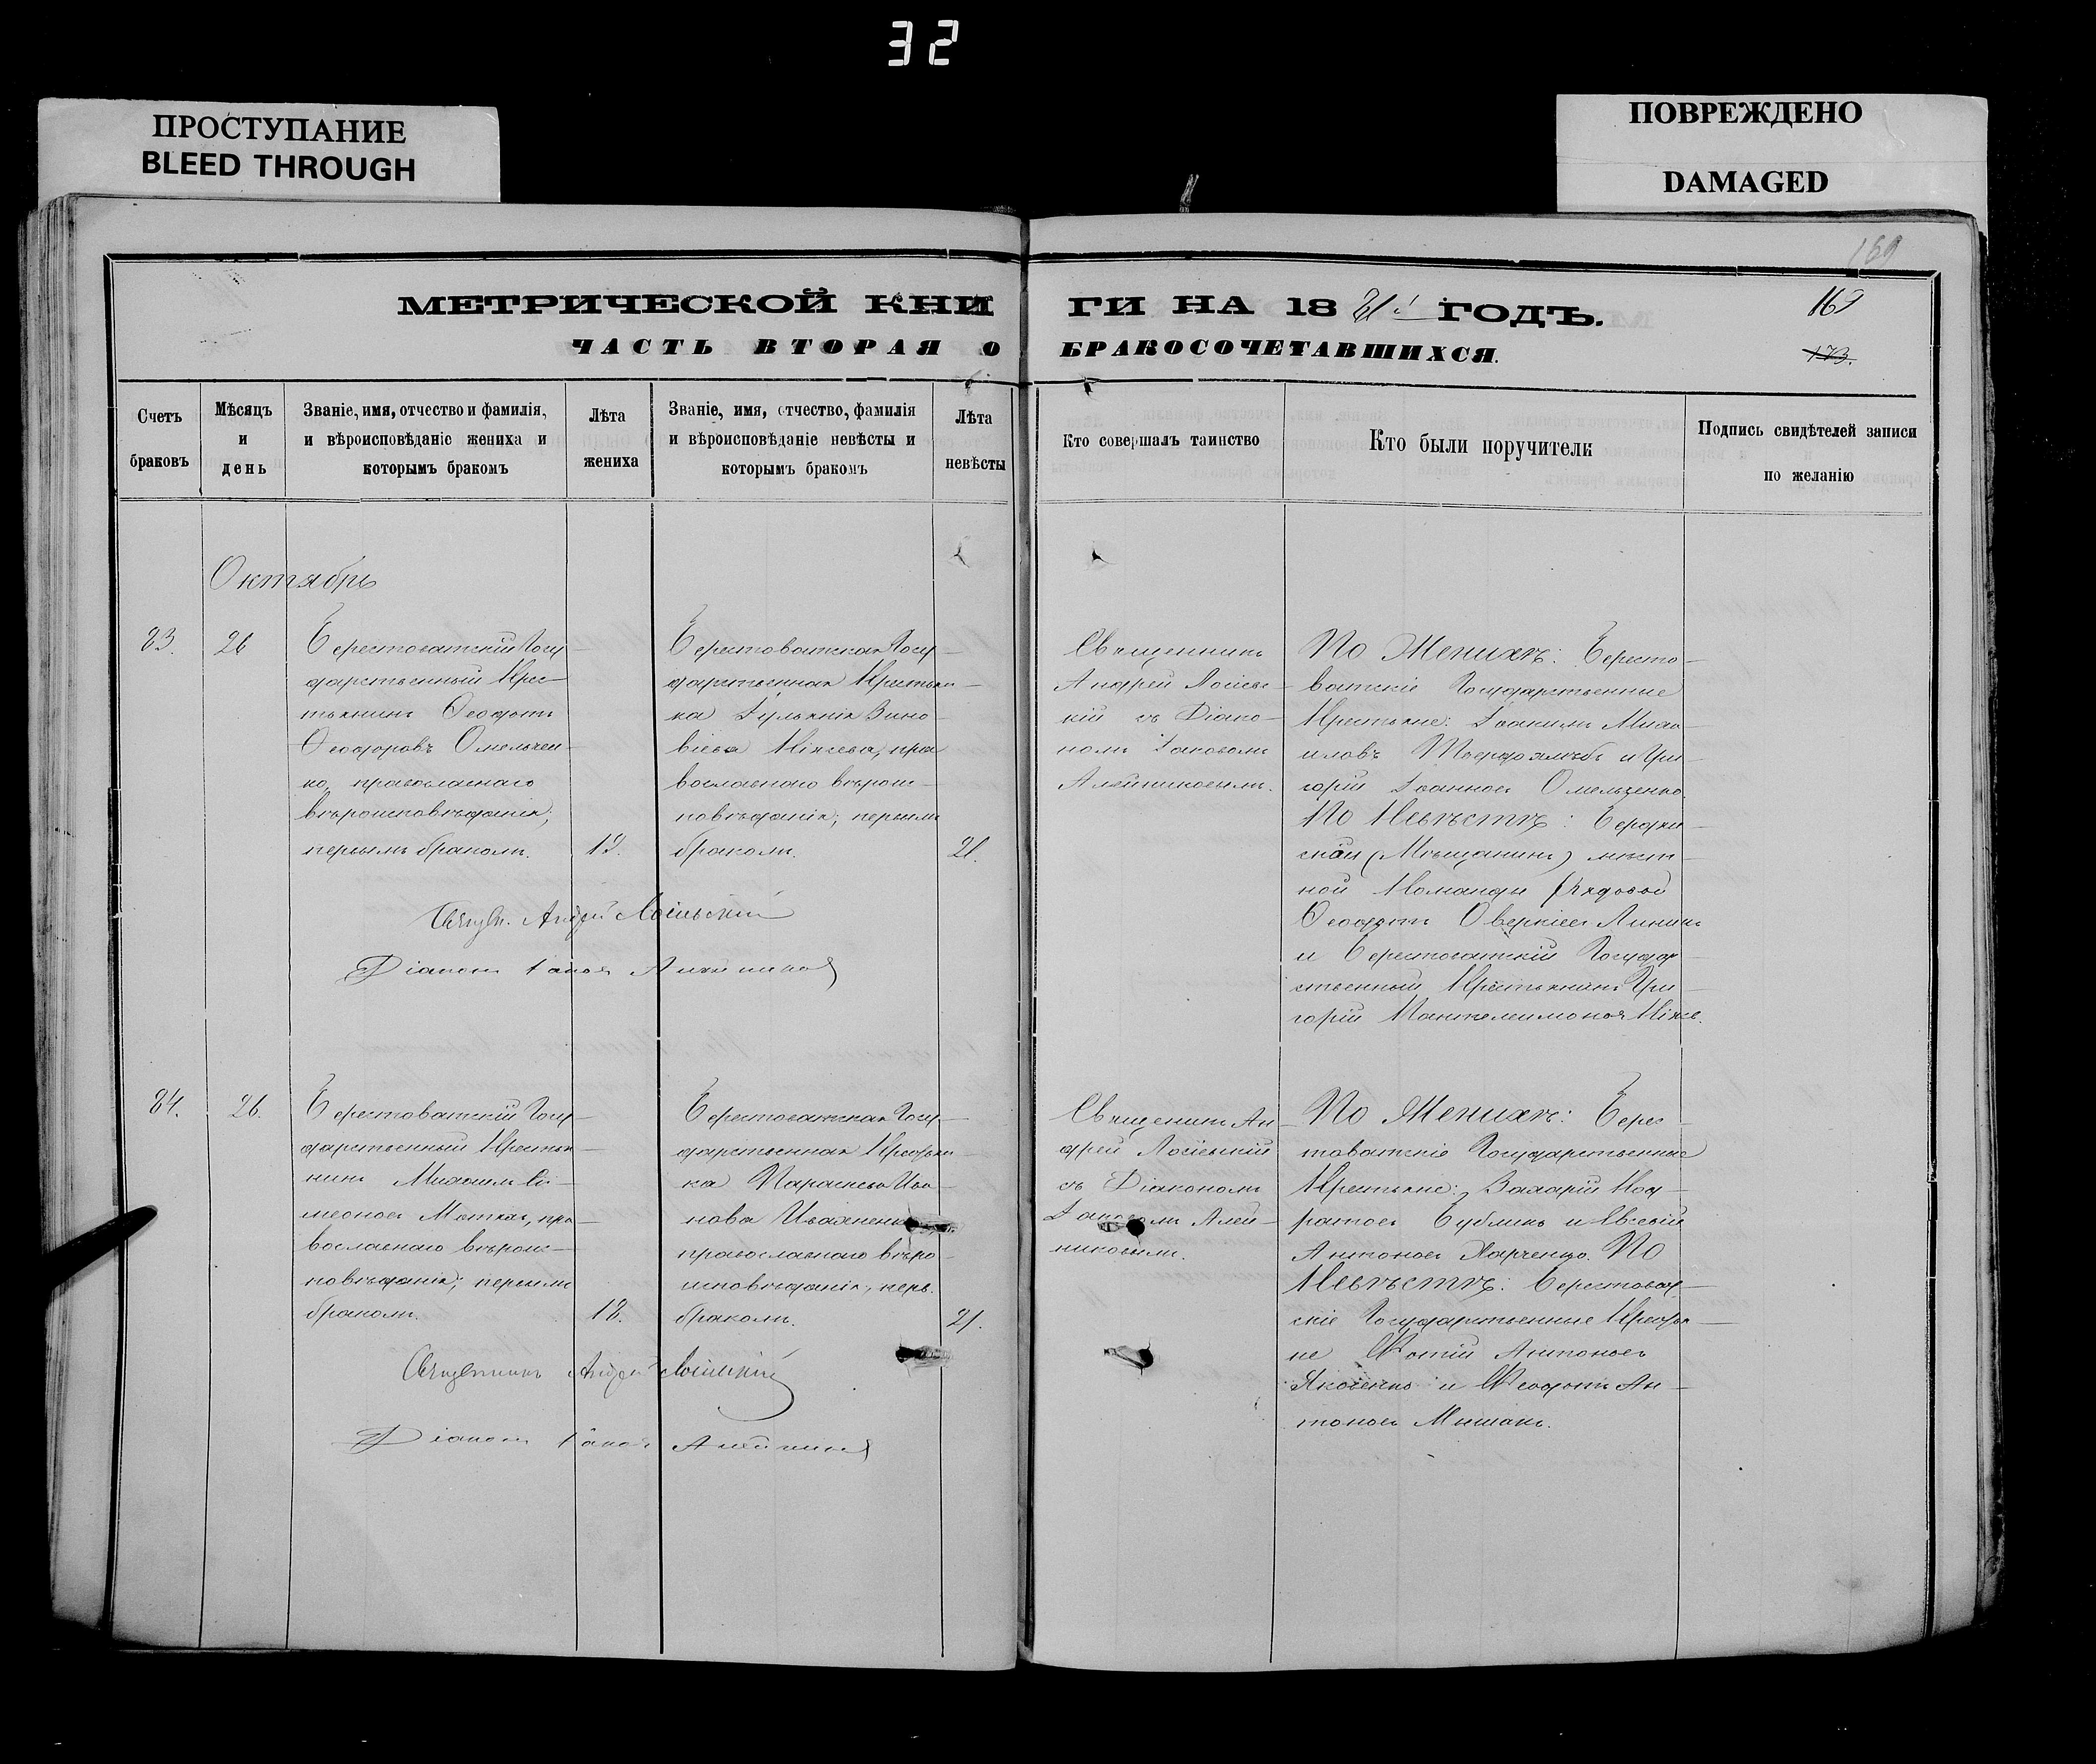 32
ПРОСТУПАНИЕ
BLEED THROUGH
ПОВРЕЖДЕНО
DAMAGED
169
МЕТРИЧЕСКОЙ КНИ ГИ НА 18 ГОДЪ.
169
ЧАСТЬ ВТОРАЯ О БРАКОСОЧЕТАВШИХСЯ.
173.
Счетъ
браковъ
Мѣсяцъ
и
день
Званіе, имя, отчество и фамилія,
и вѣроисповѣданіе жениха и
которымъ бракомъ
Лѣта
жениха
Званіе, имя, отчество, фамилія
и вѣроисповѣданіе невѣсты и
которымъ бракомъ
Лѣта
невѣсты
Кто совершалъ таинство
Кто были поручители
Подпись свидѣтелей записи
по желанію
Октябрь
83.
26
Берестоватскій Госу-
дарственный Крес-
тьянинъ Ѳеодотъ
Ѳеодоровъ Омельчен-
ко, православнаго
вѣроисповѣданія,
первымъ бракомъ.
Берестоватская Госу-
дарственная Крестьян-
ка Іуліанія Зино-
віева Кіяева, пра
вославнаго вѣроис-
повѣданія; первымъ
бракомъ.
21.
Священникъ
Андрей Лосіевс-
кій съ Діако-
номъ Іаковомъ
Алейниковымъ.
По Женихѣ: Бересто-
ватскіе Государственные
Крестьяне: Іоакимъ Миха
иловъ и Гри-
горій Іоанновъ Омельченко.
По Невѣстѣ: Бердян-
скій (Мѣщанинъ) мѣст-
ной Команды Рядовой
Ѳеодотъ Оверкіевъ
и Берестоватскій Государ-
ственный Крестьянинъ Гри-
горій Пантелеимоновъ
Андрей Лосіевскій
Діаконъ Іаковъ Алейниковъ
84.
26.
Берестоватскій Госу-
дарственный Крестья-
нинъ Михаилъ Си-
меоновъ пра-
вославнаго вѣроис-
повѣданія; первымъ
бракомъ.
18.
Берестоватская Госу-
дарственная Крестьян-
ка Параскева Ива-
нова Иваненко
православнаго вѣро-
исповѣданія, перв.
бракомъ.
21.
Священникъ Ан-
дрей Лосіевскій
съ Діакономъ
Іаковомъ Алей-
никовымъ.
По Женихѣ: Берес-
товатскіе Государственные
Крестьяне: Захарій Код-
ратовъ Бубликъ и Евсевій
Антоновъ Харченко. По
Невѣстѣ: Берестоват-
скіе Государственные Крестья-
не Фотій Антоновъ
Яковенко и Ѳеодотъ Ан-
тоновъ Мишакъ.
Священникъ Андрей Лосіевскій
Діаконъ Іаковъ Алейниковъ